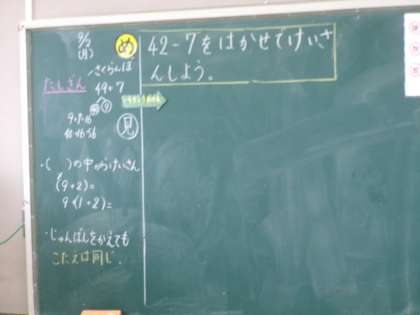 9/2
(月)
め
42-7をはかせでけいさ
んしよう。
さくらんぼ
たしざん
49+7
見
・( )の中からけいさん
(9+2)=
9+(1+2)=
・じゅんばんをかえても
こたえは同じ。